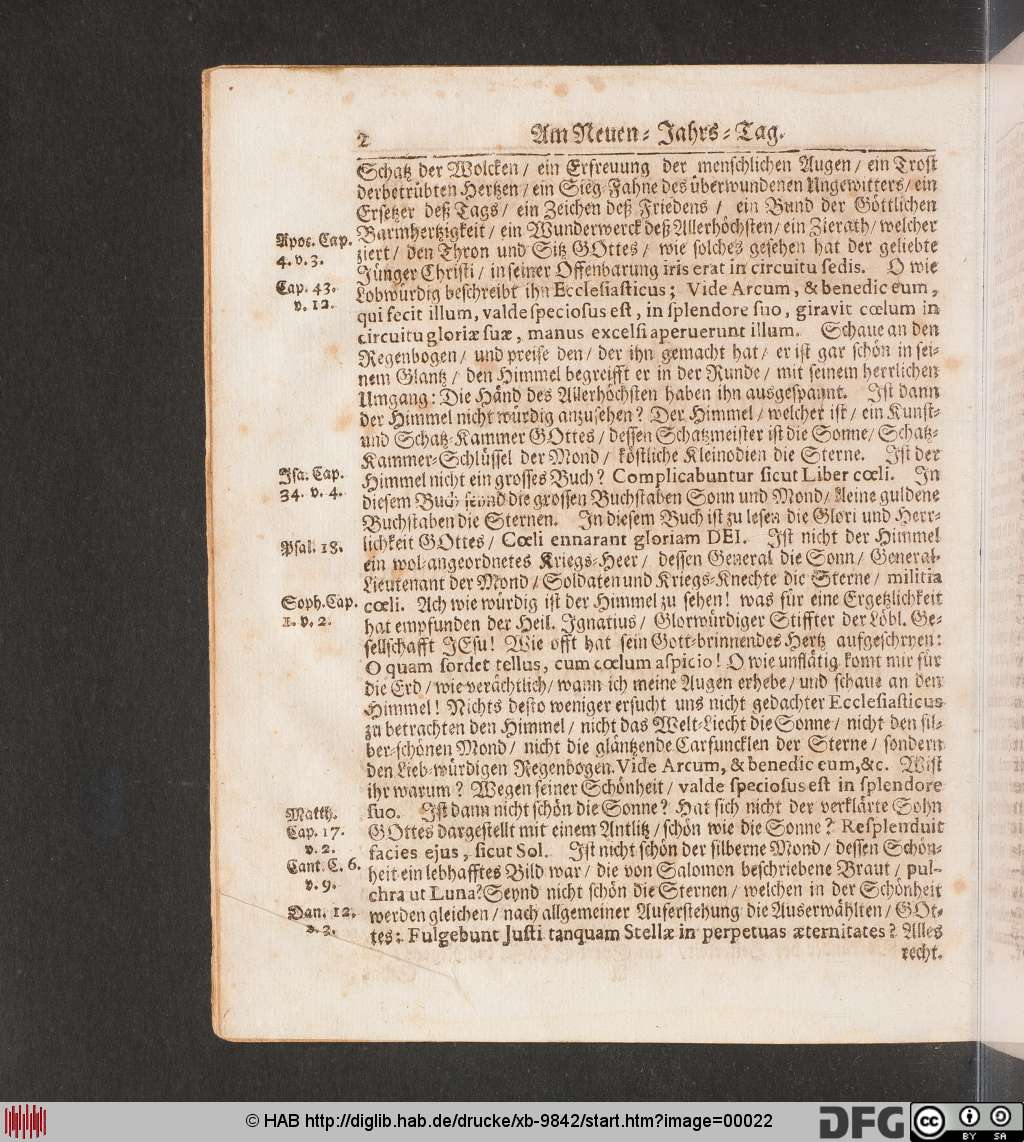 2
Am Neuen-Jahrs-Tag.
Schatz der Wolcken / ein Erfreuung der menschlichen Augen / ein Trost
der betrübten Hertzen / ein Sieg-Fahne des überwundenen Ungewitters / ein
Ersetzer deß Tags / ein Zeichen deß Friedens / ein Bund der Göttlichen
Barmhertzigkeit / ein Wunderwerck deß Allerhöchsten / ein Zierath / welcher
Apoc. Cap.
4. v. 3.
ziert / den Thron und Sitz GOttes / wie solches gesehen hat der geliebte
Jünger Christi / in seiner Offenbarung iris erat in circuitu sedis. O wie
Cap. 43.
v. 12.
Lobwürdig beschreibt ihn Ecclesiasticus; Vide Arcum, & benedic eum,
qui fecit illum, valde speciosus est, in splendore suo, giravit cœlum in
circuitu gloriæ suæ, manus excelsi aperuerunt illum. Schaue an den
Regenbogen / und preise den / der ihn gemacht hat / er ist gar schön in sei-
nem Glantz / den Himmel begreifft er in der Runde / mit seinem herrlichen
Umgang: Die Händ des Allerhöchsten haben ihn ausgespannt. Ist dann
der Himmel nicht würdig anzusehen? Der Himmel / welcher ist / ein Kunst-
und Schatz-Kammer GOttes / dessen Schatzmeister ist die Sonne / Schatz-
Kammer-Schlüssel der Mond / köstliche Kleinodien die Sterne. Ist der
Jsa. Cap.
34. v. 4.
Himmel nicht ein grosses Buch? Complicabuntur sicut Liber cœli. In
diesem Buch seynd die grossen Buchstaben Sonn und Mond / kleine guldene
Buchstaben die Sternen. In diesem Buch ist zu lesen die Glori und Herr-
Psal. 18.
lichkeit GOttes / Cœli ennarant gloriam DEI. Ist nicht der Himmel
ein wol-angeordnetes Kriegs-Heer / dessen General die Sonn / General-
Lieutenant der Mond / Soldaten und Kriegs-Knechte die Sterne / militia
Soph. Cap.
1. v. 2.
cœli. Ach wie würdig ist der Himmel zu sehen! was für eine Ergetzlichkeit
hat empfunden der Heil. Ignatius / Glorwürdiger Stiffter der Löbl. Ge-
sellschafft JEsu! Wie offt hat sein Gott-brinnendes Hertz aufgeschryen:
O quam sordet tellus, cum cœlum aspicio! O wie unflätig komt mir für
die Erd / wie verächtlich / wann ich meine Augen erhebe / und schaue an den
Himmel! Nichts desto weniger ersucht uns nicht gedachter Ecclesiasticus
zu betrachten den Himmel / nicht das Welt-Liecht die Sonne / nicht den sil-
ber-schönen Mond / nicht die gläntzende Carfuncklen der Sterne / sondern
den Lieb-würdigen Regenbogen. Vide Arcum, & benedic eum, &c. Wist
ihr warum? Wegen seiner Schönheit / valde speciosus est in splendore
Matth.
Cap. 17.
v. 2.
suo. Ist dann nicht schön die Sonne? Hat sich nicht der verklärte Sohn
GOttes dargestellt mit einem Antlitz / schön wie die Sonne? Resplenduit
facies ejus, sicut Sol. Ist nicht schön der silberne Mond / dessen Schön-
Cant. C. 6.
v. 9.
heit ein lebhafftes Bild war / die von Salomon beschriebene Braut / pul-
chra ut Luna? Seynd nicht schön die Sternen / welchen in der Schönheit
Dan. 12.
v. 3.
werden gleichen / nach allgemeiner Auferstehung die Auserwählten / GOt-
tes: Fulgebunt Justi tanquam Stellæ in perpetuas æternitates? Alles
recht.
© HAB http://diglib.hab.de/drucke/xb-9842/start.htm?image=00022
DFG
cc
BY SA